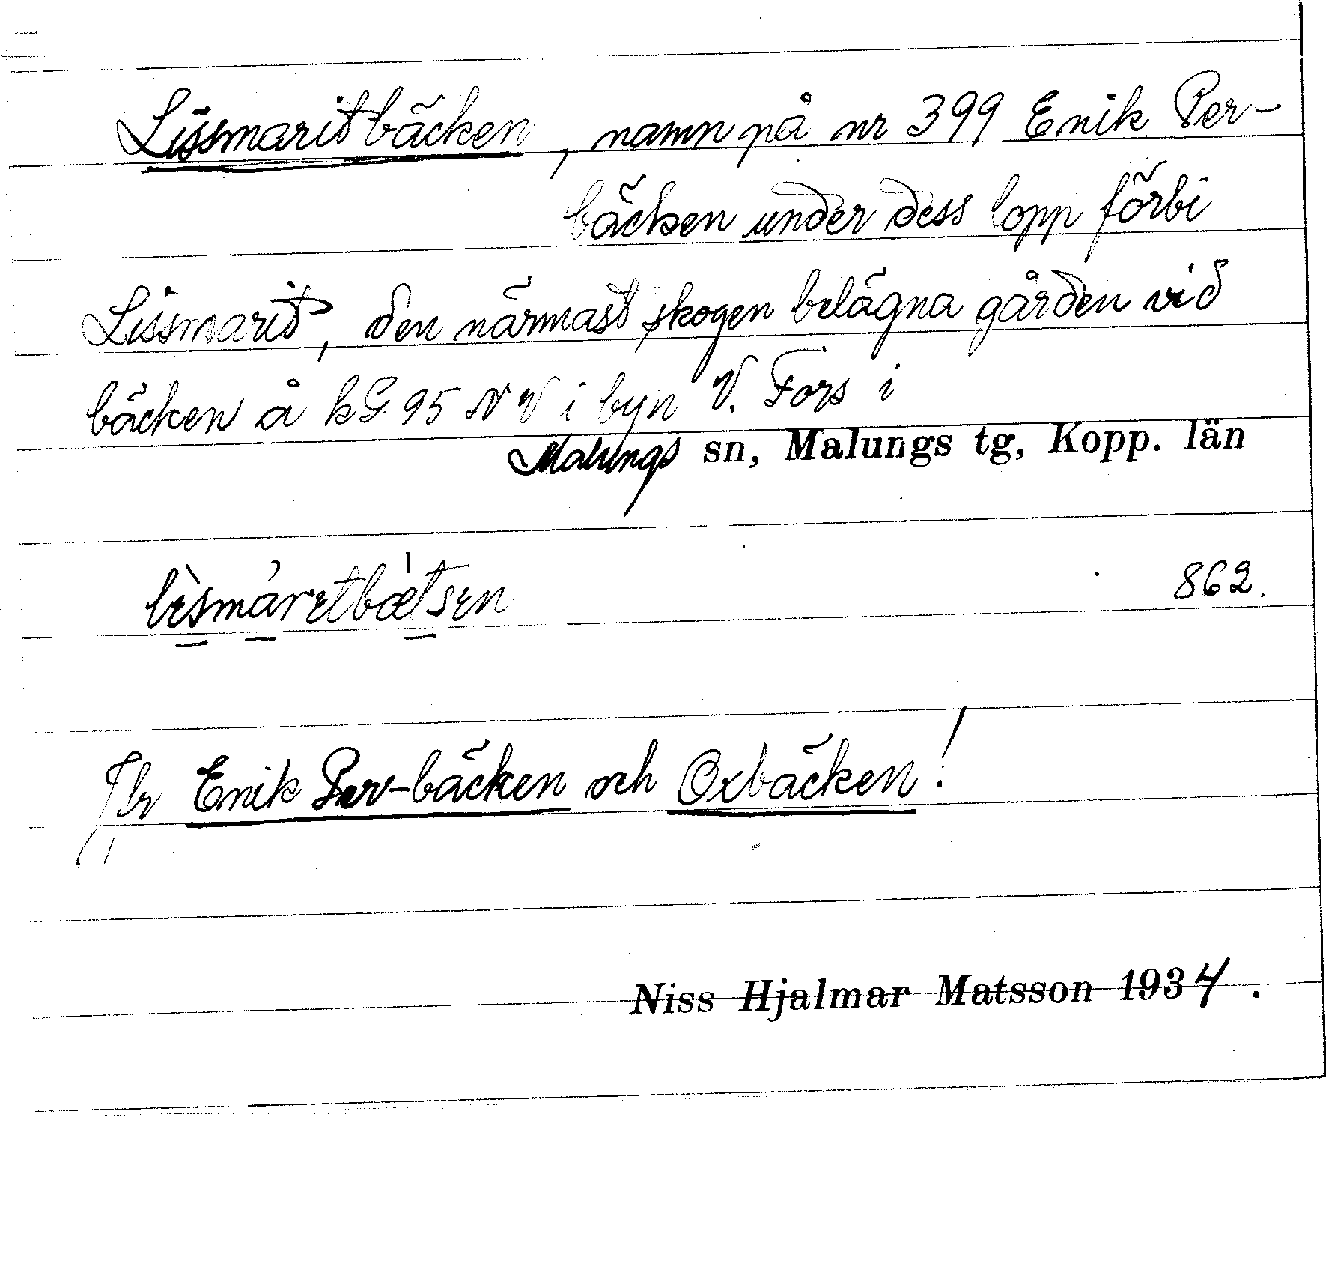 Lissmaritbäcken, namn på nr 399 Enik Per-
bäcken under dess lopp förbi
Lissmarit, den närmast skogen belägna gården vid
bäcken å kG 95 NV i byn V. Fors i
Malungs sn, Malungs tg, Kopp. län
862.
Jfr Enik Per-bäcken och Oxbäcken!
Niss Hjalmar Matsson 1934.